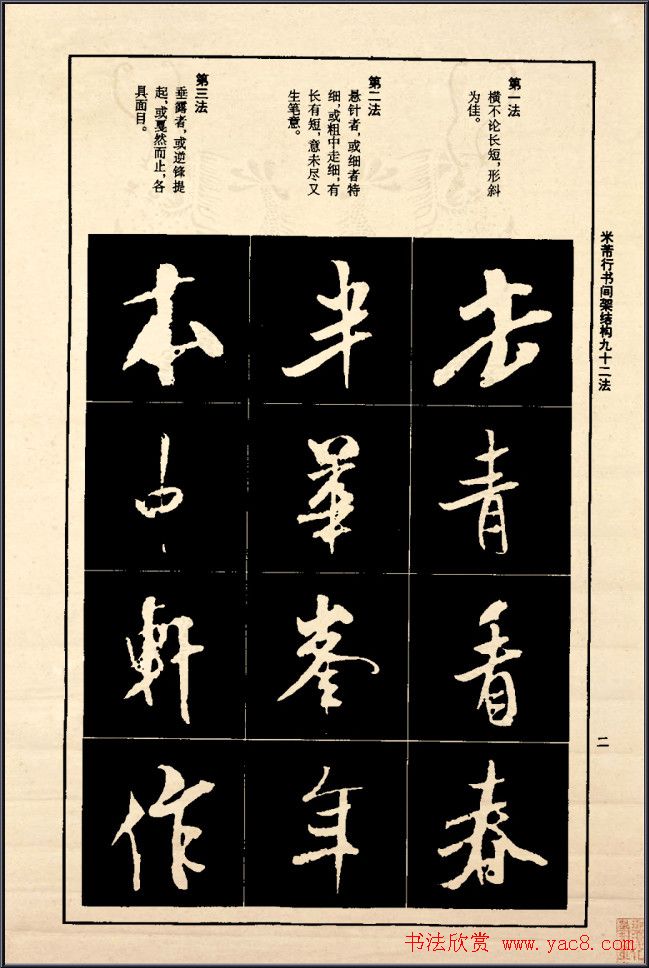 米芾行书间架结构九十二法
二
第一法
横不论长短，形斜
为佳。
第二法
悬针者，或细者特
细，或粗中走细，有
长有短，意未尽又
生笔意。
第三法
垂露者，或逆锋提
起，或戛然而止，各
具面目。
老青看春
半華峯年
本中軒作
书法欣赏 www.yac8.com